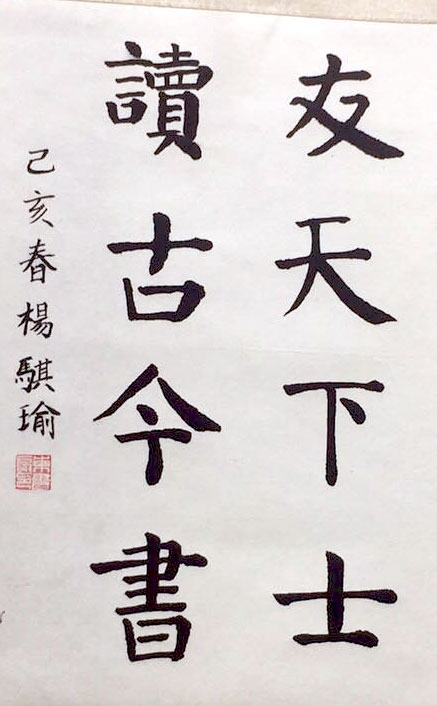 友天下士
讀古今書
己亥春楊騏瑜